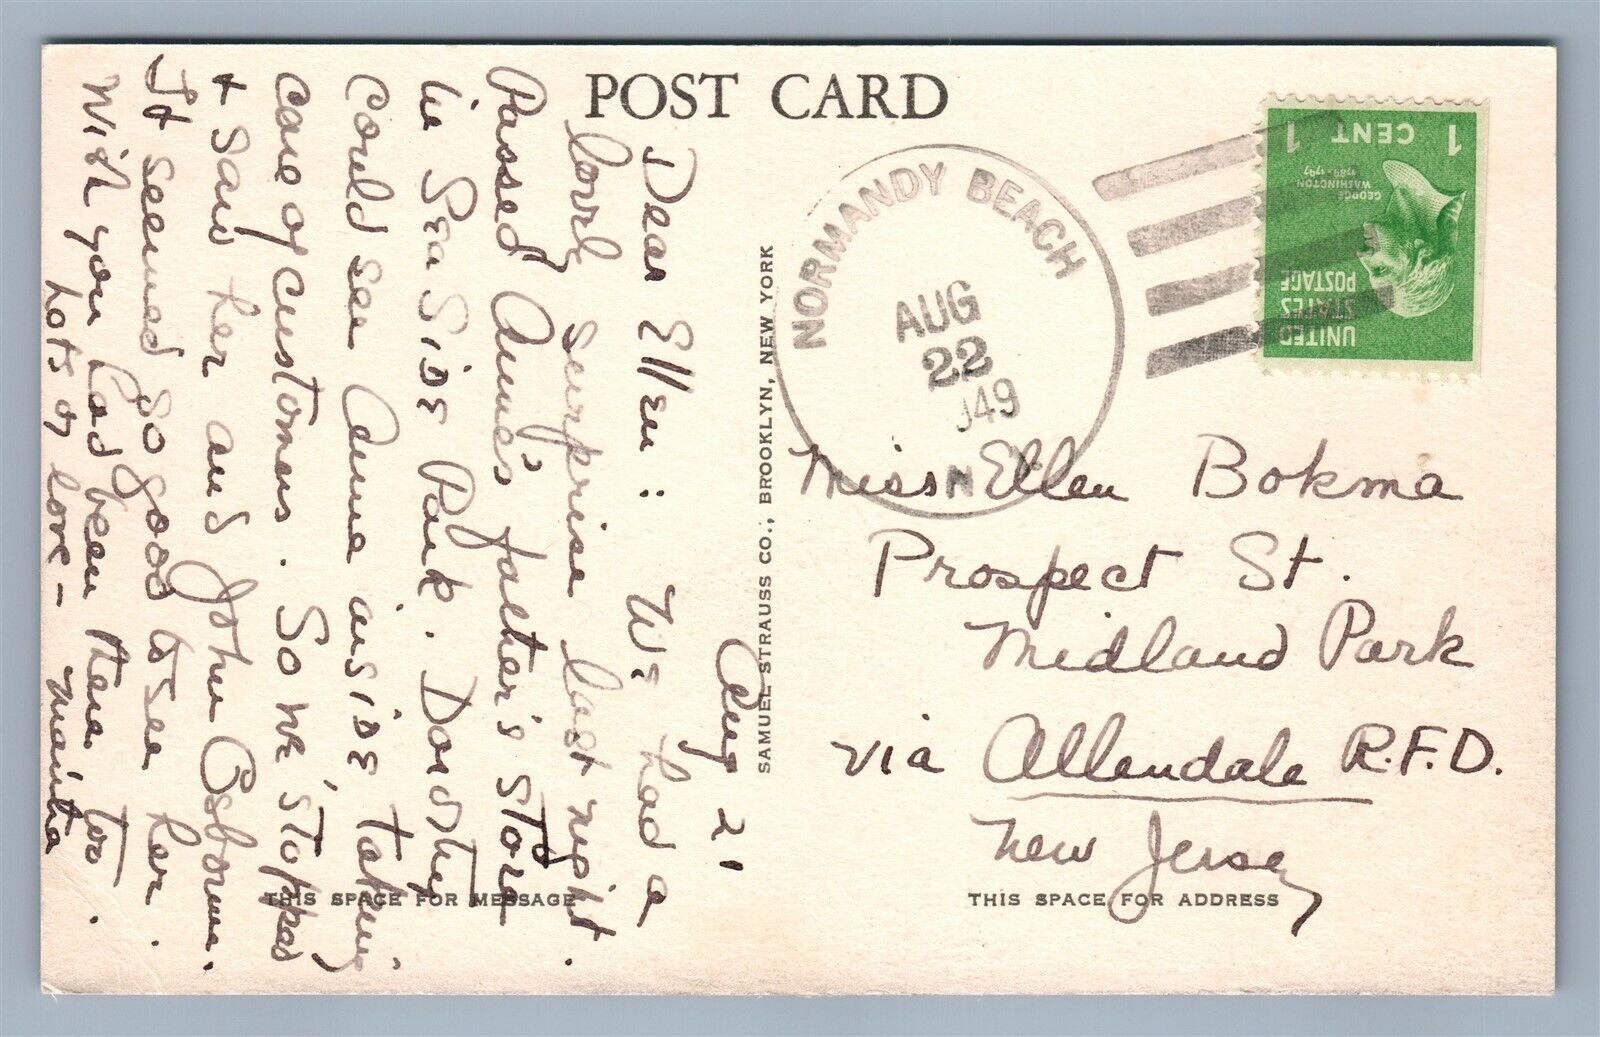 POST CARD
Aug 21
Dear Ellen: We had a
lovely surprise last night.
Passed Anne's father's store
in Sea Side Park. Dorothy
could see Anne inside taking
care of customers. So we stopped
+ saw her and John Osborne.
It seemed so good to see her.
Wish you had been there too.
Lots of love -
SAMUEL STRAUSS CO., BROOKLYN, NEW YORK
THIS SPACE FOR MESSAGE
NORMANDY BEACH
AUG
22
1949
N.J.
1 CENT 1
GEORGE
WASHINGTON
1789-1797
UNITED
STATES
POSTAGE
Miss Ellen Bokma
Prospect St.
Midland Park
via Allendale R.F.D.
New Jersey
THIS SPACE FOR ADDRESS